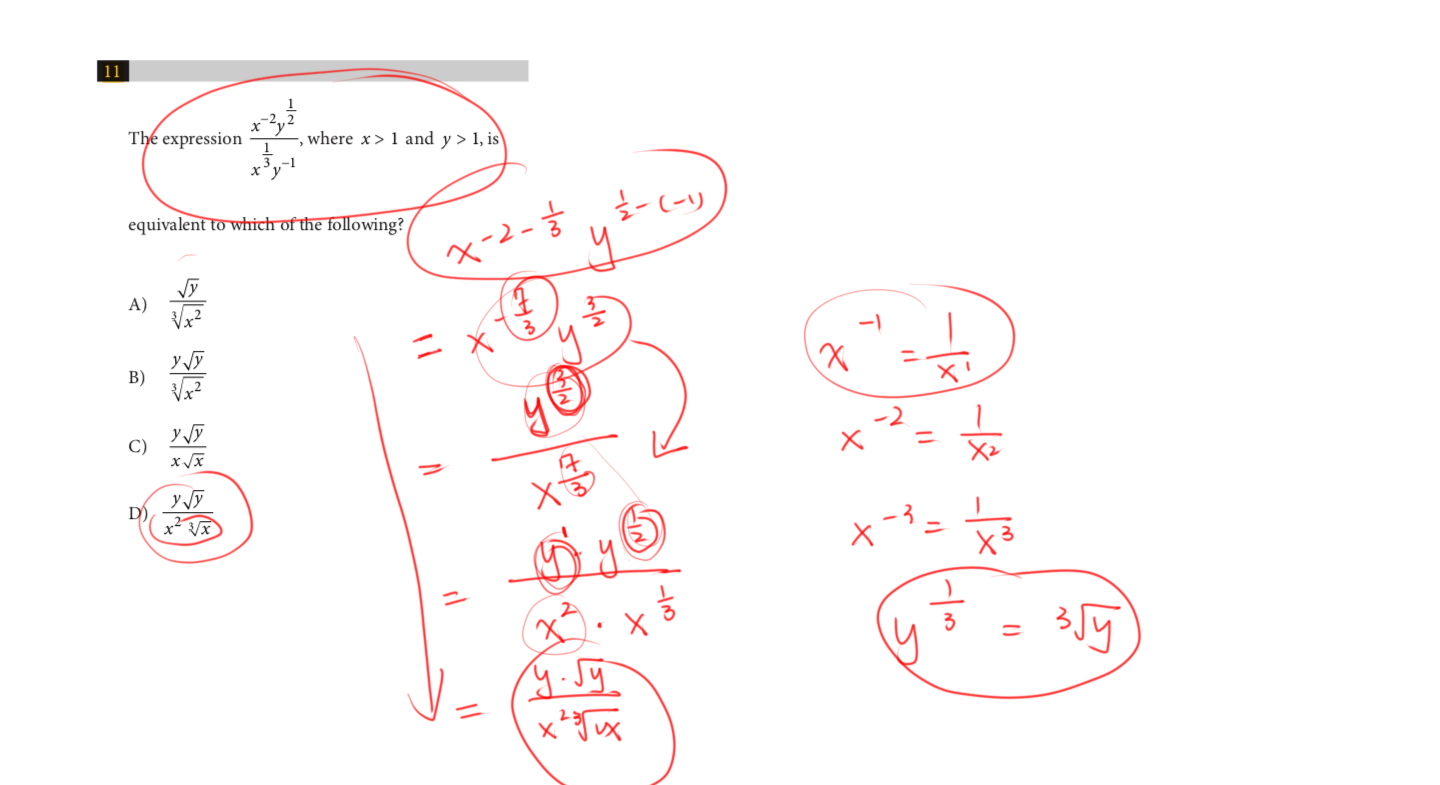 11
The expression \frac{x^{-2}y^{\frac{1}{2}}}{x^{\frac{1}{3}}y^{-1}}, where x > 1 and y > 1, is
equivalent to which of the following?
A) \frac{\sqrt{y}}{\sqrt[3]{x^2}}
B) \frac{y\sqrt{y}}{\sqrt[3]{x^2}}
C) \frac{y\sqrt{y}}{x\sqrt{x}}
D) \frac{y\sqrt{y}}{x^2\sqrt[3]{x}}
x^{-2-\frac{1}{3}} y^{\frac{1}{2}-(-1)}
= x^{-\frac{7}{3}} y^{\frac{3}{2}}
= \frac{y^{\frac{3}{2}}}{x^{\frac{7}{3}}}
= \frac{y^1 \cdot y^{\frac{1}{2}}}{x^2 \cdot x^{\frac{1}{3}}}
= \frac{y \cdot \sqrt{y}}{x^2 \sqrt[3]{x}}
x^{-1} = \frac{1}{x^1}
x^{-2} = \frac{1}{x^2}
x^{-3} = \frac{1}{x^3}
y^{\frac{1}{3}} = \sqrt[3]{y}